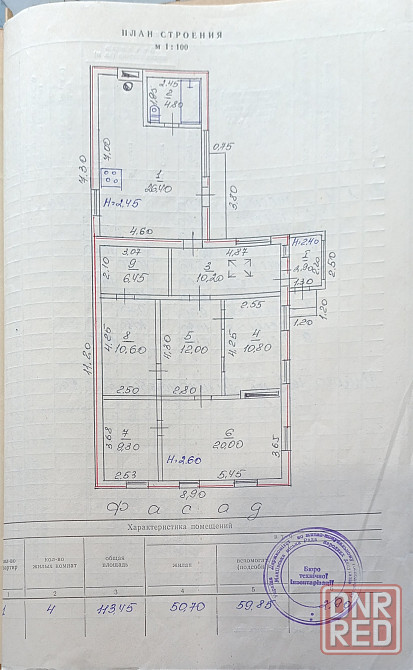 ПЛАН СТРОЕНИЯ
М 1:100
2.45
2
4.80
7.00
7.30
1
26.40
0.75
3.80
H=2.45
4.60
3.07
4.37
H=2.40
2.10
9
6.45
3
10.20
I
2.90
2.50
1.30
1.20
1.20
2.55
4.25
8
10.60
4.30
5
12.00
4.25
4
10.80
11.20
2.50
2.80
3.68
7
9.30
6
20.00
3.65
H=2.60
2.53
5.45
8.90
Фасад
Характеристика помещений
кол-во жилых комнат
общая площадь
жилая
2
3
4
5
1
4
113.45
50,70
59,85
Бюро
технічної
інвентаризації
DNR
RED